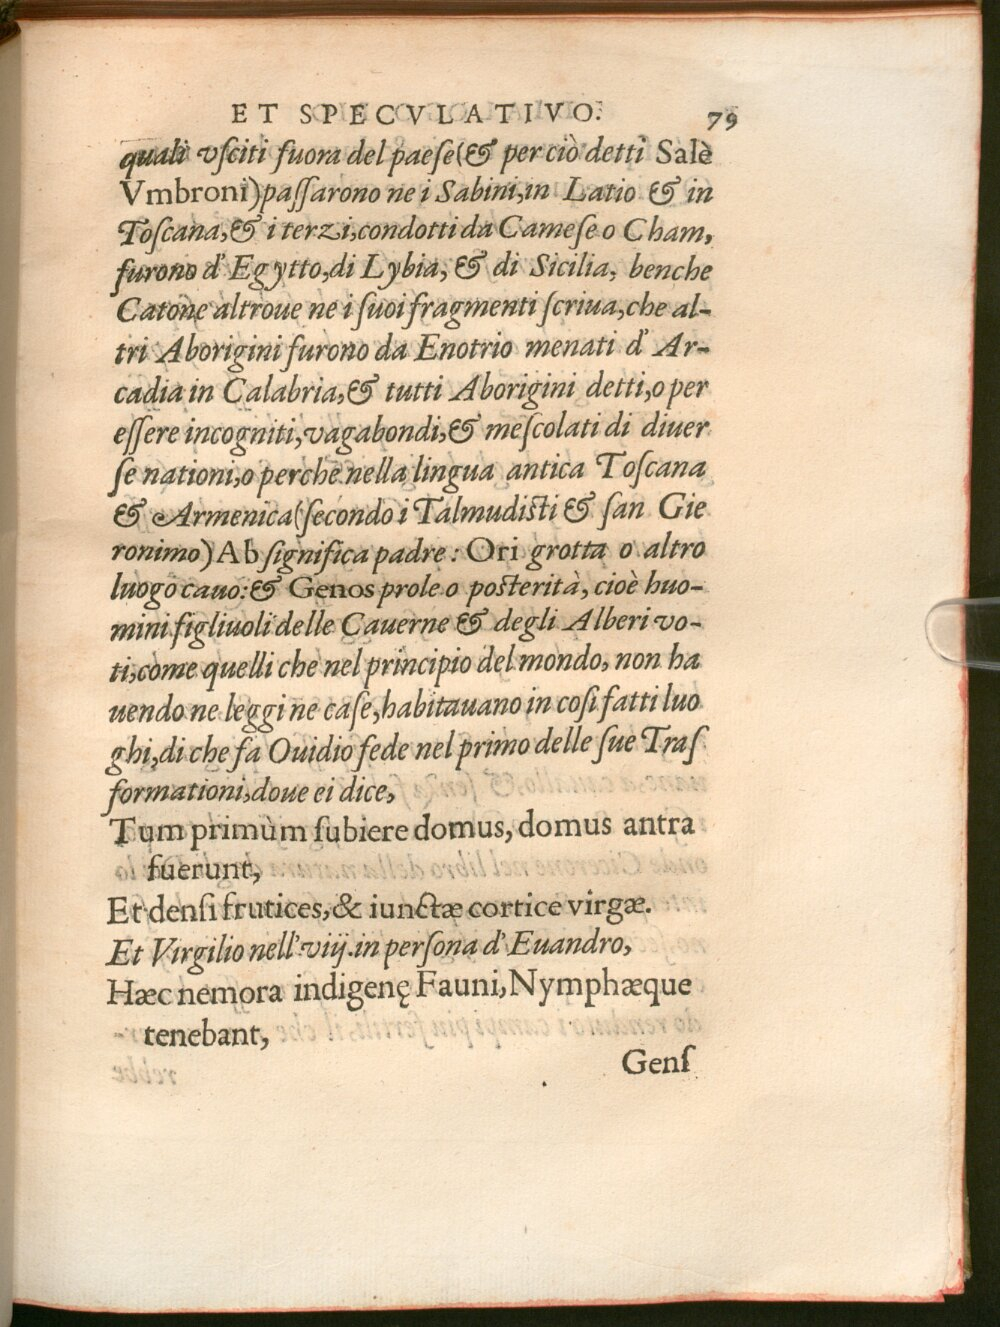 ET SPECVLATIVO. 79
quali vſciti fuora del paeſe(& per ciò detti Salè
Vmbroni)paſſarono ne i Sabini,in Latio & in
Toſcana,& i terzi,condotti da Cameſe o Cham,
furono d' Egytto,di Lybia, & di Sicilia, benche
Catone altroue ne i ſuoi fragmenti ſcriua,che al-
tri Aborigini furono da Enotrio menati d' Ar-
cadia in Calabria,& tutti Aborigini detti,o per
eſſere incogniti,vagabondi,& meſcolati di diuer
ſe nationi,o perche nella lingua antica Toſcana
& Armenica(ſecondo i Talmudisti & ſan Gie
ronimo)Ab ſignifica padre: Ori grotta o altro
luogo cauo:& Genos prole o posterità, cioè huo-
mini figliuoli delle Cauerne & degli Alberi vo-
ti,come quelli che nel principio del mondo, non ha
uendo ne leggi ne caſe,habitauano in coſi fatti luo
ghi,di che fa Ouidio fede nel primo delle ſue Traſ
formationi,doue ei dice,
Tum primùm ſubiere domus, domus antra
fuerunt,
Et denſi frutices,& iunctæ cortice virgæ.
Et Virgilio nell' viij.in perſona d' Euandro,
Hæc nemora indigenę Fauni,Nymphæque
tenebant,
Genſ